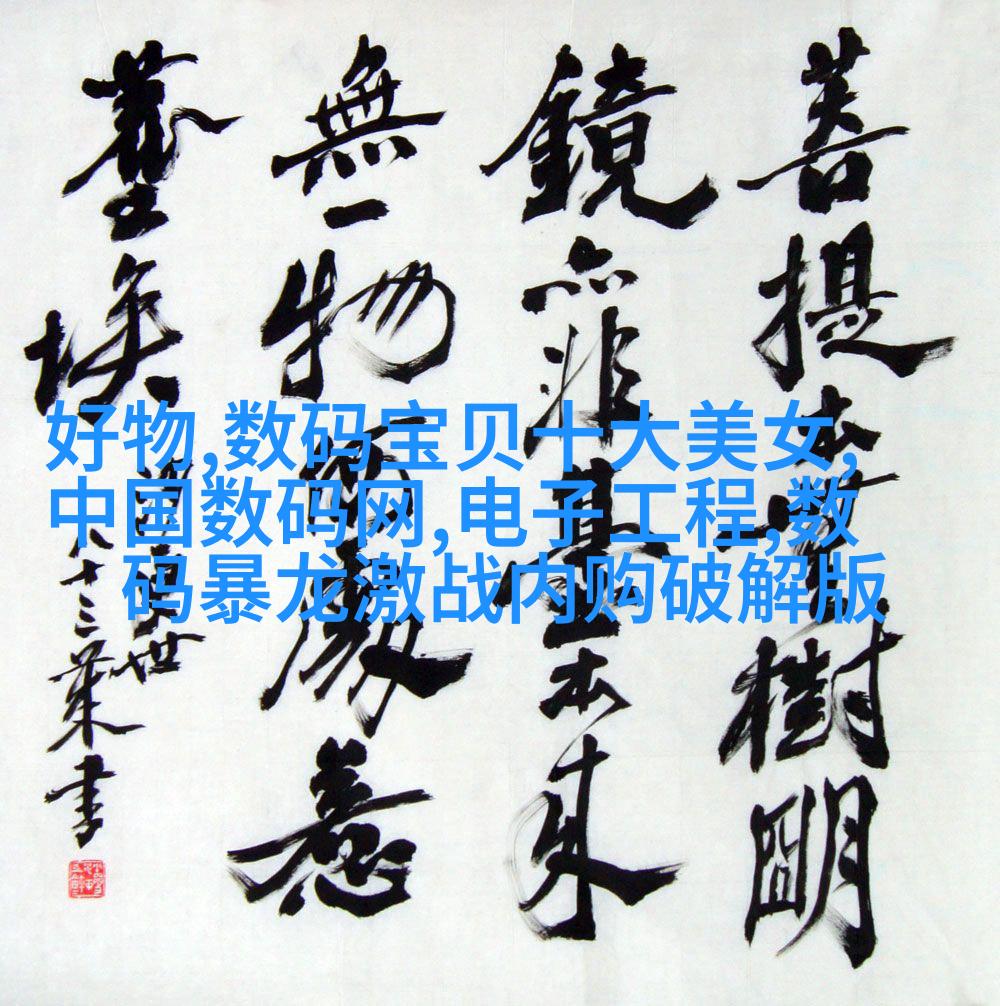 好物,数码宝贝十大美女,
中国数码网,电子工程,数
码暴龙激战内购破解版
菩提本樹明
鏡亦非臺本來
無一物何處惹
塵埃
八十三 書